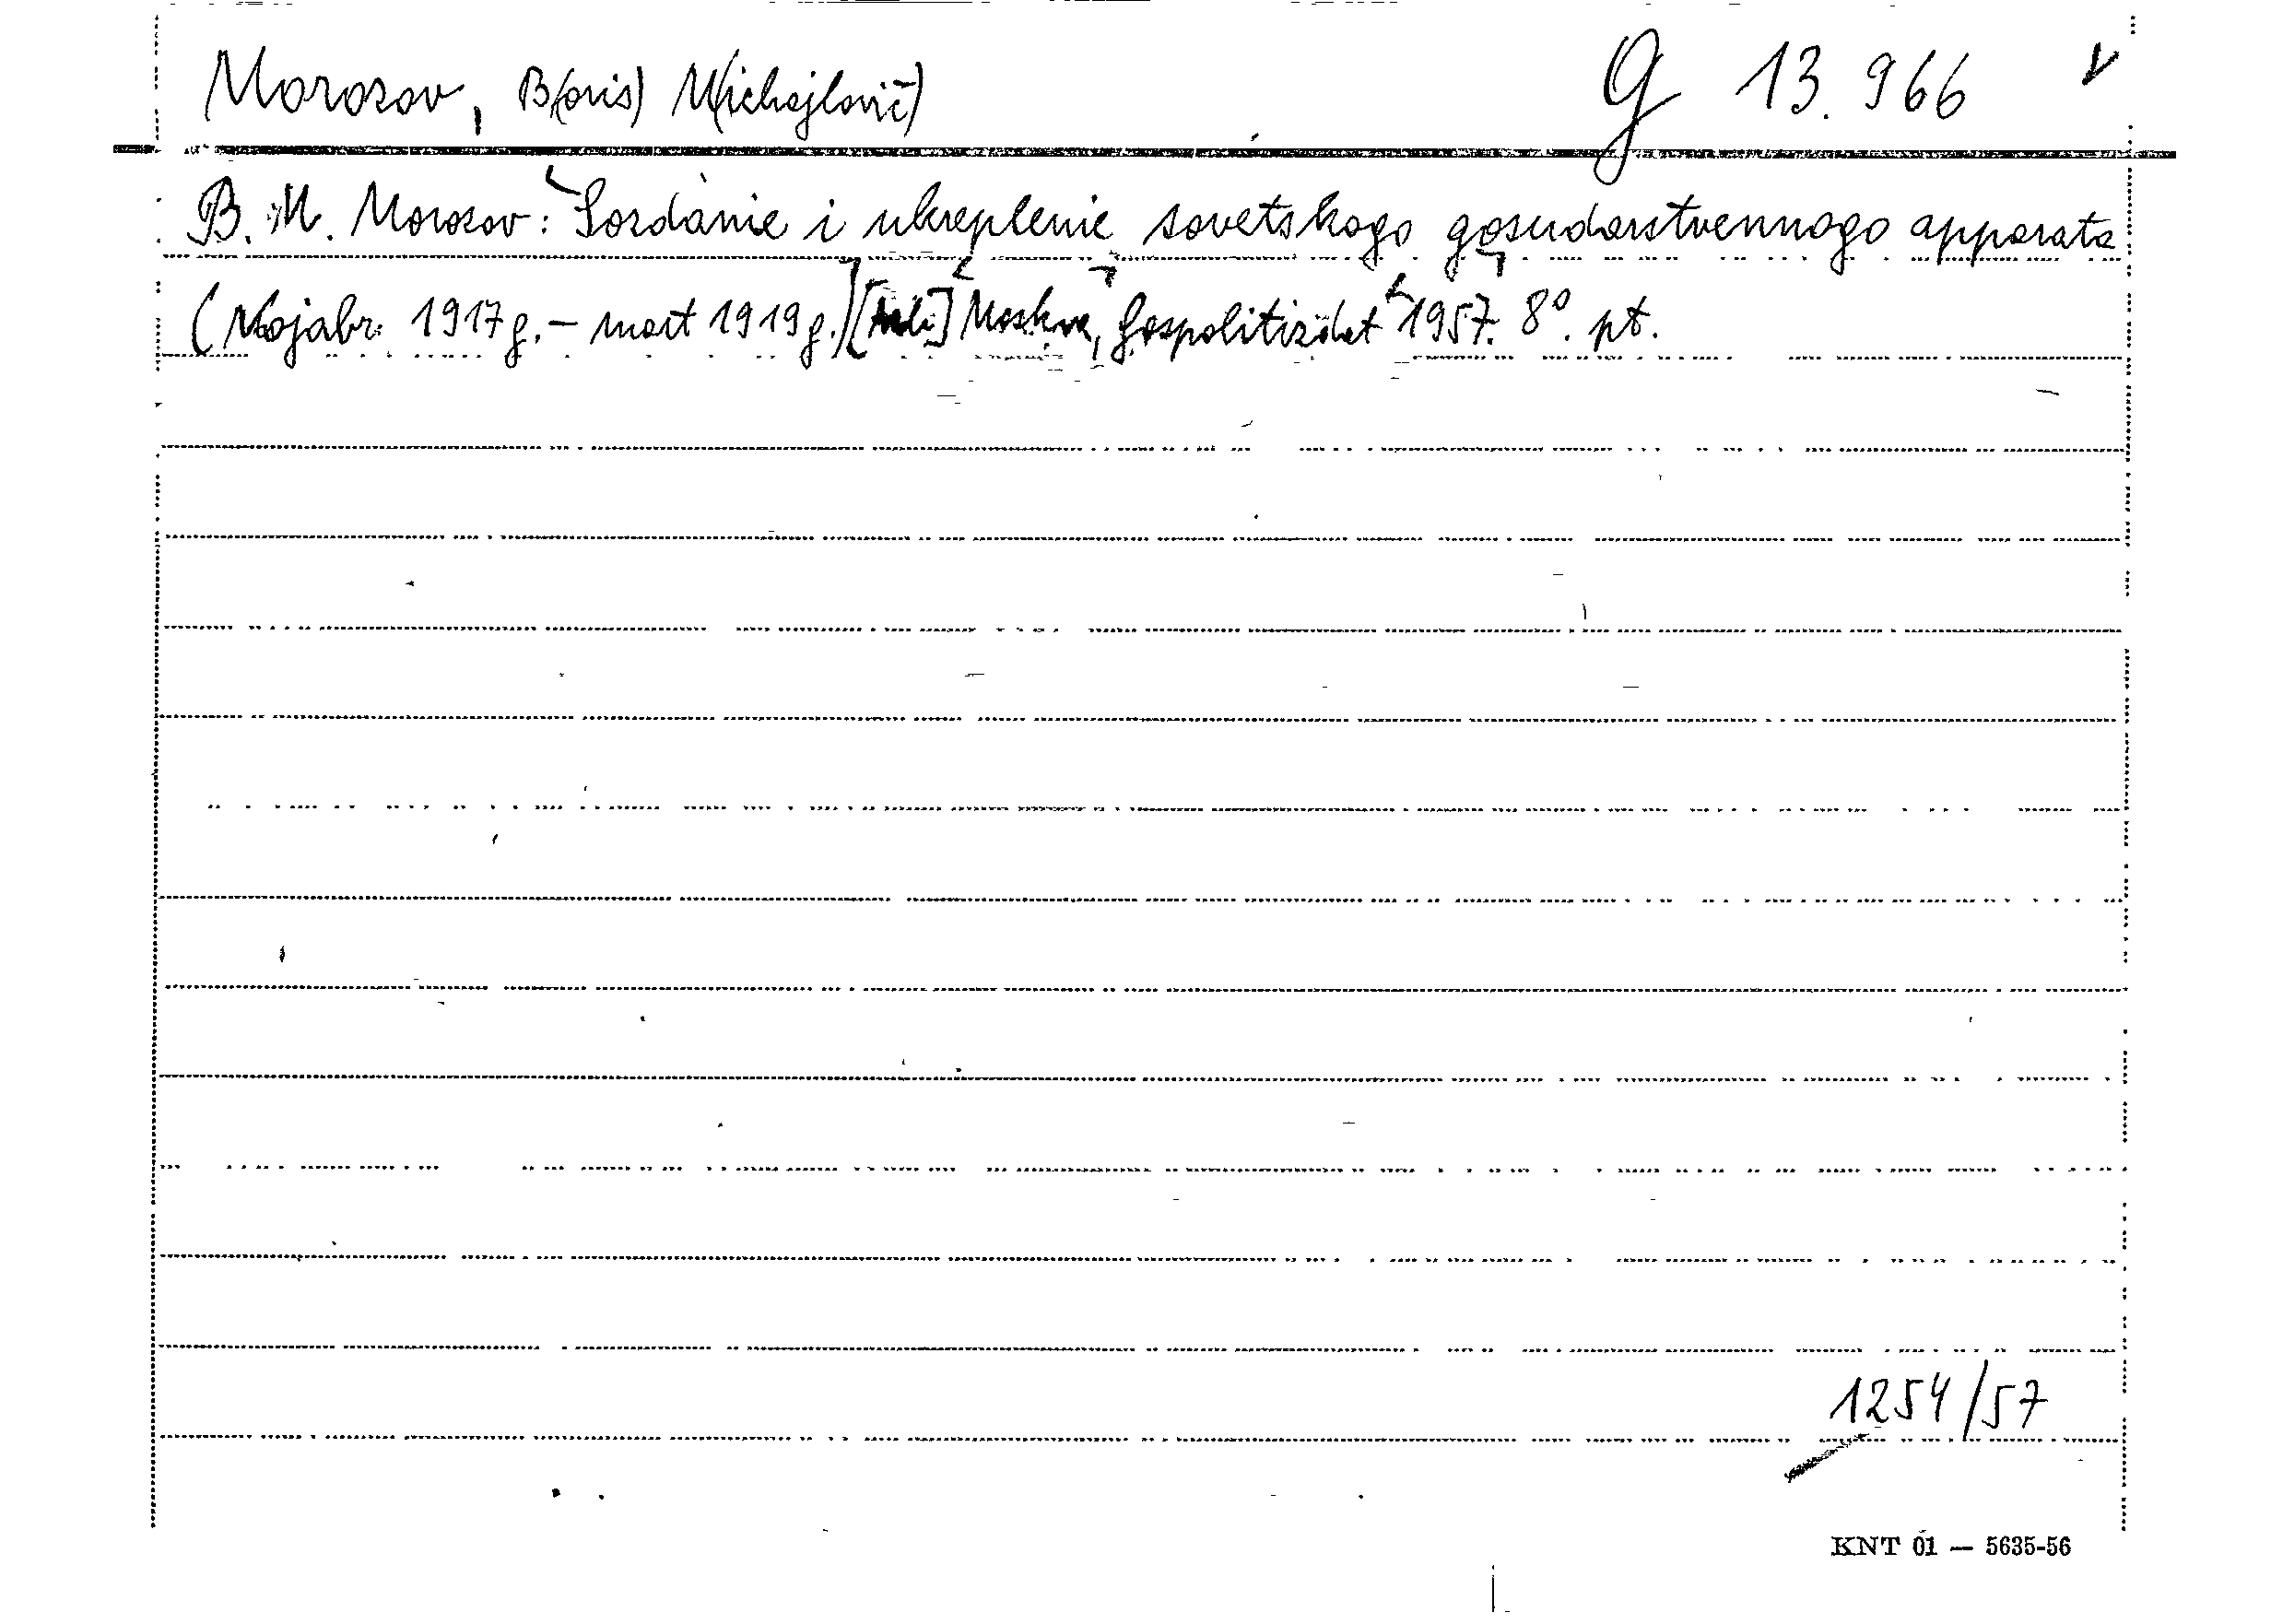 Morozov, B(oris) M(ichajlovič) G 13.966
B. M. Morozov: Sozdanie i ukreplenie sovetskogo gosudarstvennogo apparata
(Nojabr. 1917 g. – mart 1919 g.) Moskva, Gospolitizdat 1957. 8°. pt.
1254/57
KNT 01 — 5635-56